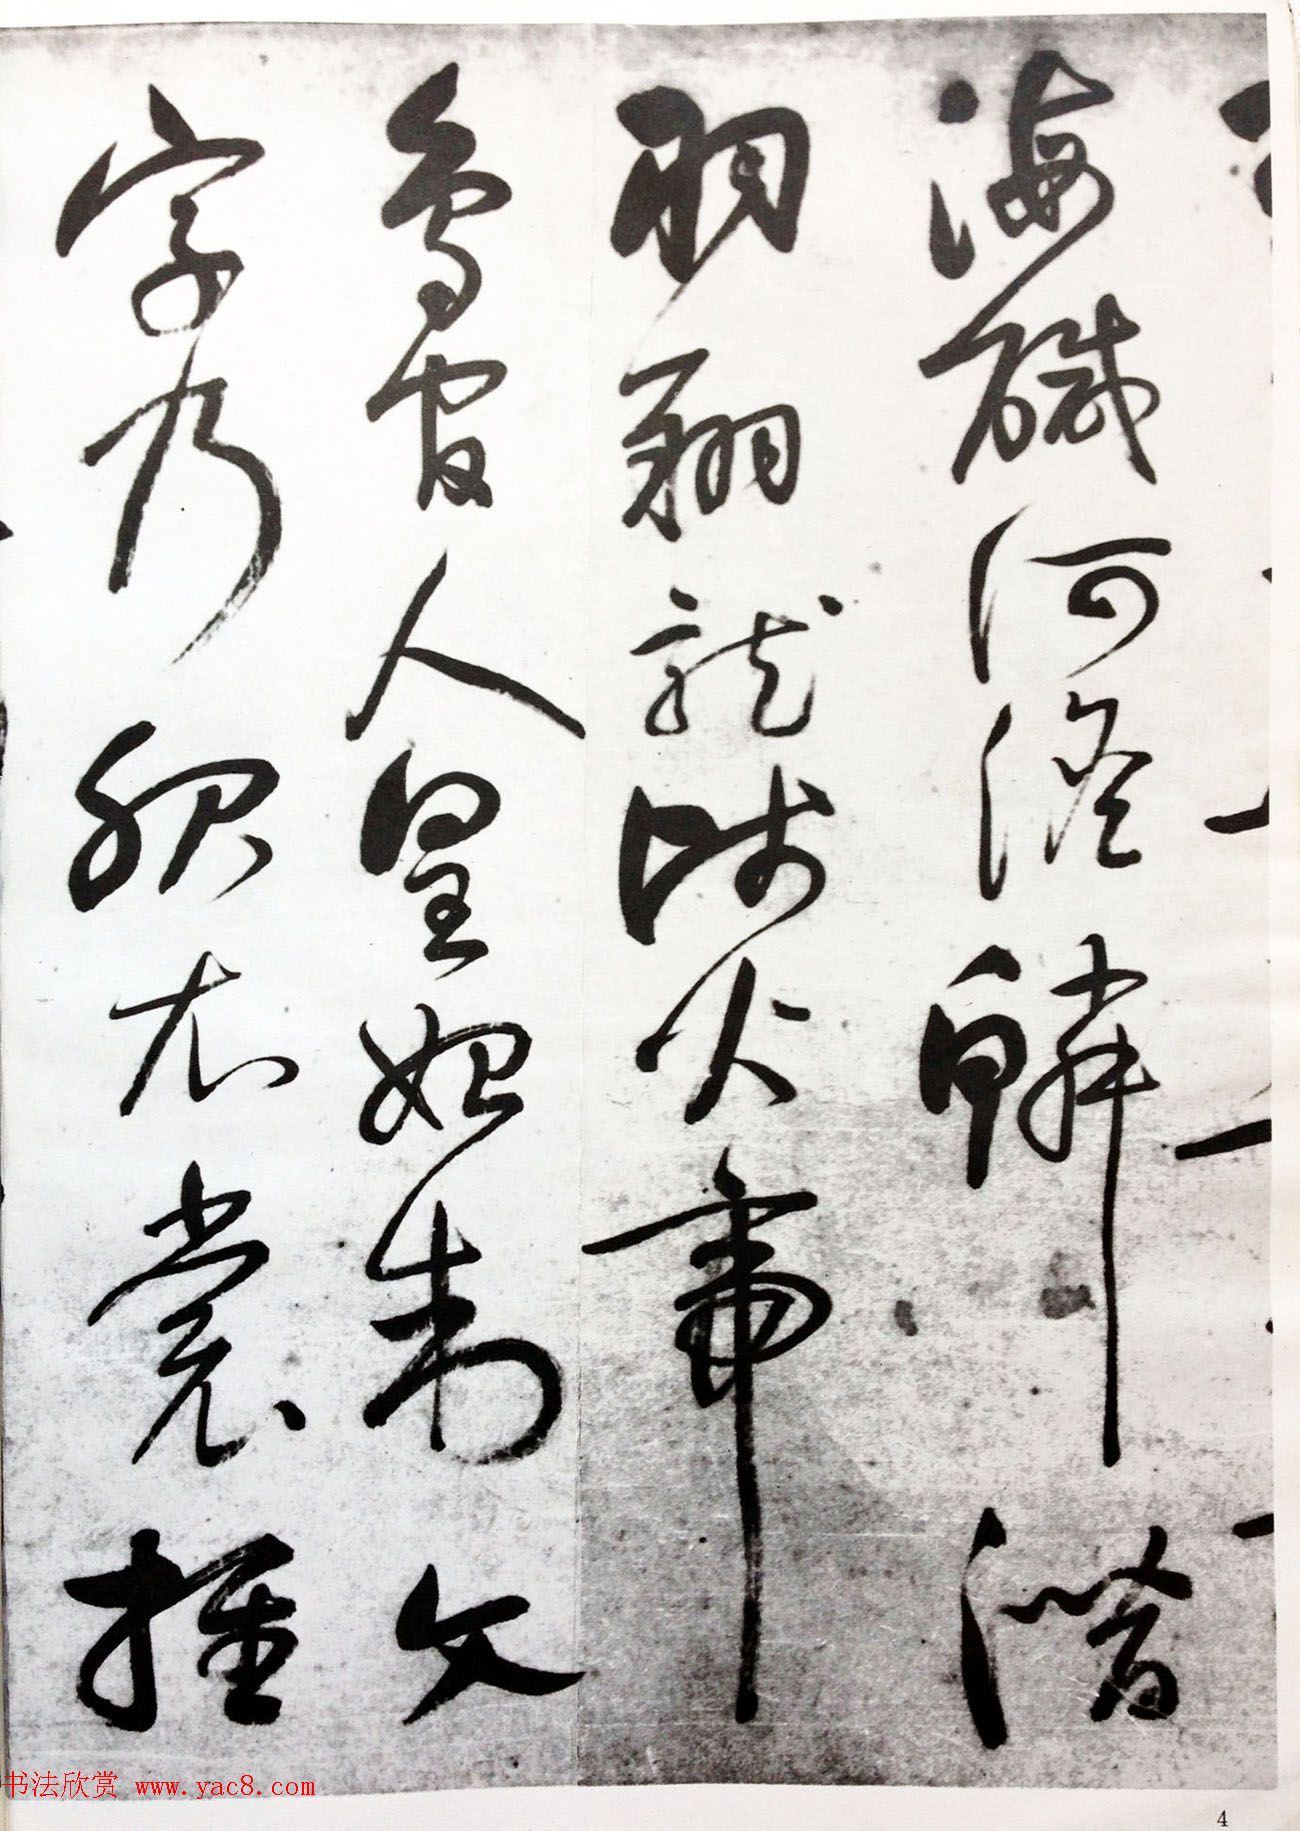 海碱河淡鱗潛
羽翔龍師火帝
鳥官人皇始制文
字乃服衣裳推
书法欣赏 www.yac8.com
4